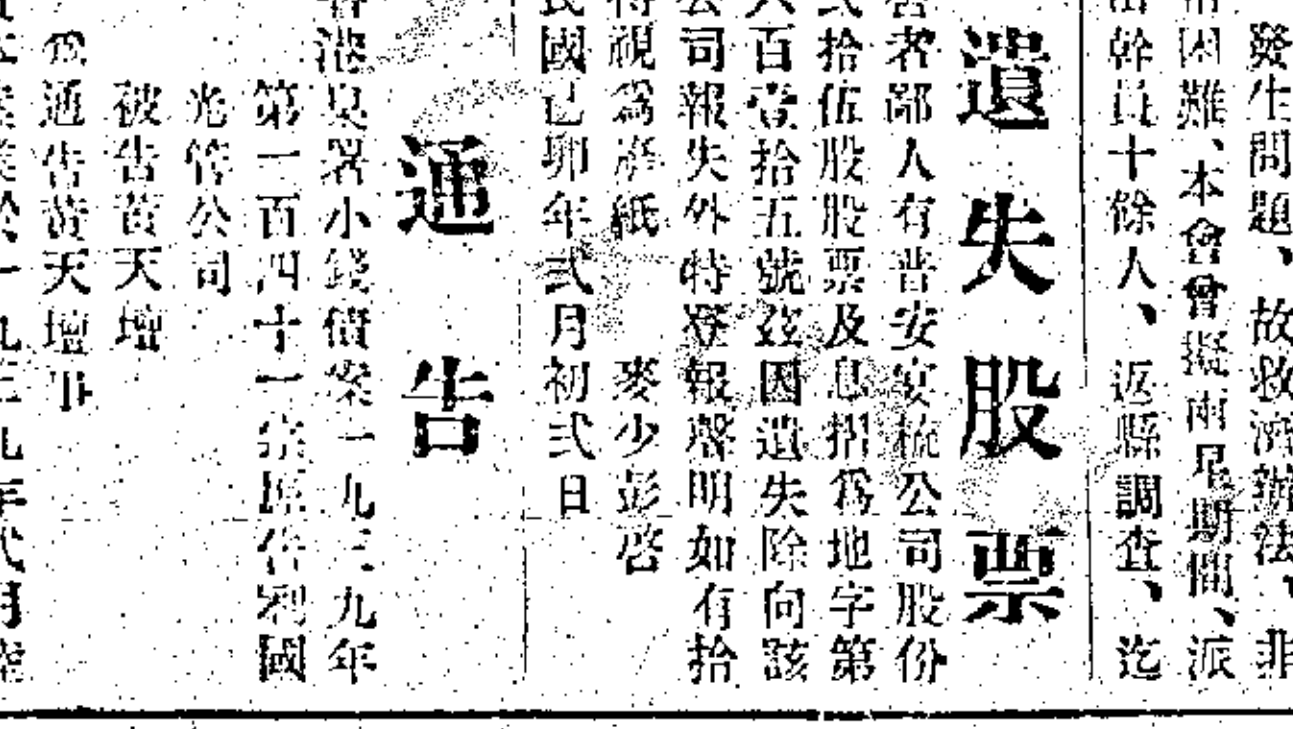 發生問題、故救濟辦法、非
困難、本會曾擬兩星期間、派
幹員十餘人、返縣調查、迄
遺失股票
者鄙人有普安安梳公司股份
弍拾伍股股票及息摺為地字第
六百壹拾五號茲因遺失除向該
公司報失外特登報聲明如有拾
視為廢紙 麥少彭啓
民國己卯年弍月初弍日
通告
港臬署小錢債案一九三九年
第一百四十一宗原告利國
光管公司
被告黃天壇
為通告黃天壇事
於一九三九年弍月